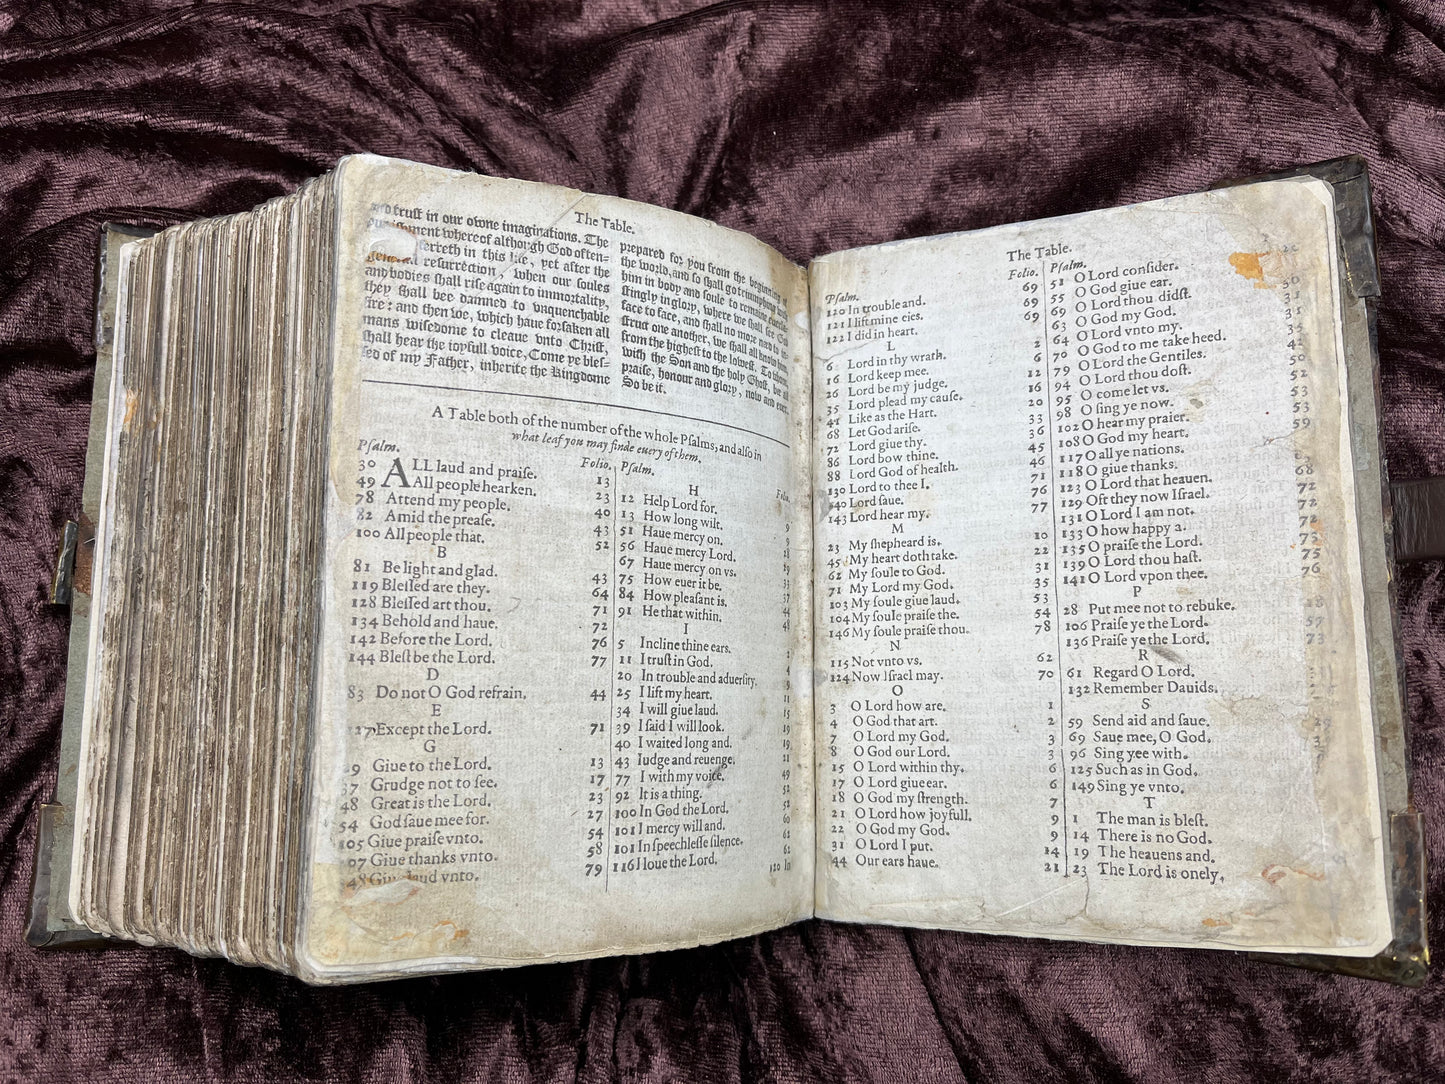 The Table.
and trust in our owne imaginations. The
punishment whereof although God often-
deferreth in this life, yet after the
generall resurrection, when our soules
and bodies shall rise again to immortality,
they shall bee damned to vnquenchable
fire: and then we, which haue forsaken all
mans wisedome to cleaue vnto Christ,
shall hear the ioyfull voice, Come ye bles-
sed of my Father, inherite the kingdome
prepared for you from the beginning of
the world, and so shall go triumphing with
him in body and soule to remaine
in glory, where we shall see God
face to face, and shall no more need to in-
struct one another, we shall all know him,
from the highest to the lowest. To whom,
with the Son and the holy Ghost, bee all
praise, honour and glory, now and euer.
So be it.
A Table both of the number of the whole Psalms, and also in
what leaf you may finde euery of them.
Psalm. Folio.
30 ALL laud and praise. 13
49 All people hearken. 23
78 Attend my people. 40
82 Amid the prease. 43
100 All people that. 52
B
81 Be light and glad. 43
119 Blessed are they. 64
128 Blessed art thou. 71
134 Behold and haue. 72
142 Before the Lord. 76
144 Blest be the Lord. 77
D
83 Do not O God refrain. 44
E
127 Except the Lord. 71
G
29 Giue to the Lord. 13
37 Grudge not to see. 17
48 Great is the Lord. 23
54 God saue mee for. 27
105 Giue praise vnto. 54
107 Giue thanks vnto. 58
Giue laud vnto. 79
Psalm. Folio.
H
12 Help Lord for. 9
13 How long wilt. 9
51 Haue mercy on.
56 Haue mercy Lord.
67 Haue mercy on vs.
75 How euer it be. 37
84 How pleasant is. 44
91 He that within. 48
I
5 Incline thine ears. 2
11 I trust in God. 4
20 In trouble and aduersity. 9
25 I lift my heart. 11
34 I will giue laud. 15
39 I said I will look. 19
40 I waited long and. 19
43 Iudge and reuenge. 21
77 I with my voice. 49
92 It is a thing. 52
100 In God the Lord. 52
101 I mercy will and. 60
101 In speechlesse silence. 62
116 I loue the Lord. 62
120 In
The Table.
Psalm. Folio.
120 In trouble and. 69
121 I lift mine eies. 69
122 I did in heart. 69
L
6 Lord in thy wrath. 2
16 Lord keep mee. 6
26 Lord be my judge. 12
35 Lord plead my cause. 16
41 Like as the Hart. 20
68 Let God arise. 33
72 Lord giue thy. 36
86 Lord bow thine. 45
88 Lord God of health. 46
130 Lord to thee I. 71
140 Lord saue. 76
143 Lord hear my. 77
M
23 My shepheard is. 10
45 My heart doth take. 22
62 My soule to God. 31
71 My Lord my God. 35
103 My soule giue laud. 53
104 My soule praise the. 54
146 My soule praise thou. 78
N
115 Not vnto vs. 62
124 Now Israel may. 70
O
3 O Lord how are. 1
4 O God that art. 2
7 O Lord my God. 3
8 O God our Lord. 3
15 O Lord within thy. 6
17 O Lord giue ear. 6
18 O God my strength. 7
21 O Lord how joyfull. 9
22 O God my God. 9
31 O Lord I put. 14
44 Our ears haue. 21
Psalm.
51 O Lord consider.
55 O God giue ear. 30
69 O Lord thou didst. 31
63 O God my God. 31
64 O Lord vnto my. 35
70 O God to me take heed. 42
79 O Lord the Gentiles. 50
94 O Lord thou dost. 52
95 O come let vs. 53
98 O sing ye now. 53
102 O hear my praier. 59
108 O God my heart.
117 O all ye nations.
118 O giue thanks. 68
123 O Lord that heauen. 72
129 Oft they now Israel. 72
131 O Lord I am not. 72
133 O how happy a. 73
135 O praise the Lord. 75
139 O Lord thou hast. 76
141 O Lord vpon thee.
P
28 Put mee not to rebuke.
106 Praise ye the Lord. 57
136 Praise ye the Lord. 73
R
61 Regard O Lord.
132 Remember Dauids.
S
59 Send aid and saue. 29
69 Saue mee, O God.
96 Sing yee with.
125 Such as in God.
149 Sing ye vnto.
T
1 The man is blest.
14 There is no God.
19 The heauens and.
23 The Lord is onely.